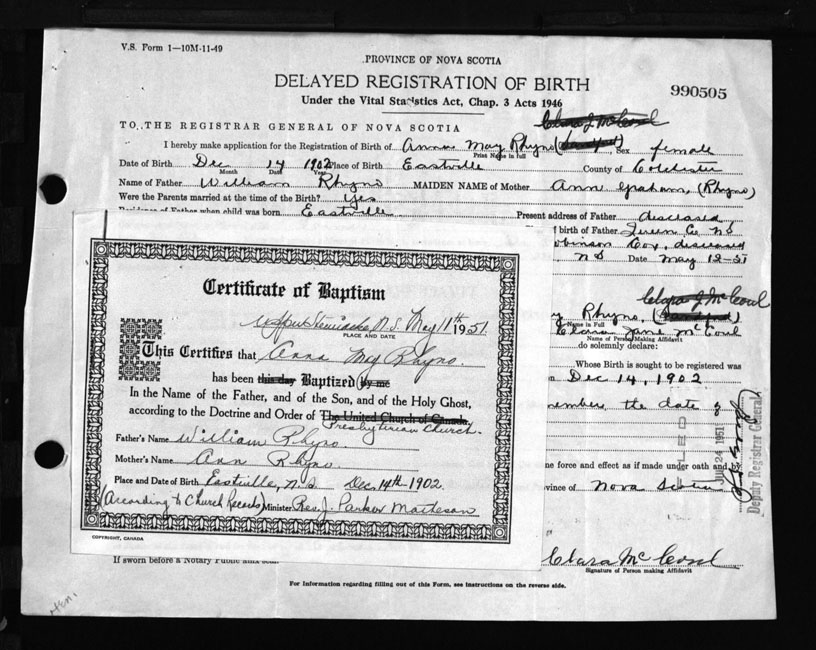 V.S. Form 1—10M-11-49
PROVINCE OF NOVA SCOTIA
DELAYED REGISTRATION OF BIRTH
990505
Under the Vital Statistics Act, Chap. 3 Acts 1946
Clara J McCoul
TO THE REGISTRAR GENERAL OF NOVA SCOTIA
I hereby make application for the Registration of Birth of Anna May Rhyno Sex female
Print Name in full
Date of Birth Dec 14 1902 Place of Birth Eastville County of Colchester
Month Date Year
Name of Father William Rhyno MAIDEN NAME of Mother Ann Graham, (Rhyno)
Were the Parents married at the time of the Birth? Yes
Residence of Father when child was born Eastville Present address of Father diseased
birth of Father Co N S
Cox, diseased
N S Date May 12-51
Clara J McCoul
Rhyno,
Name in Full
Clara Jane McCoul
Name of Person Making Affidavit
do solemnly declare:
Whose Birth is sought to be registered was
Dec 14, 1902
the date of
one force and effect as if made under oath and by
vince of Nova Scotia
1951
Deputy Registrar General
Certificate of Baptism
Upper Stewiacke, N.S. May 11th 1951
PLACE AND DATE
This Certifies that Anna May Rhyno.
has been this day Baptized by me
In the Name of the Father, and of the Son, and of the Holy Ghost,
according to the Doctrine and Order of The United Church of Canada.
Presbyterian Church.
Father's Name William Rhyno.
Mother's Name Ann Rhyno.
Place and Date of Birth Eastville, N.S. Dec. 14th 1902.
(According to Church Records) Minister Rev. J. Parker Matheson
COPYRIGHT, CANADA
If sworn before a Notary Public
Clara McCoul
Signature of Person making Affidavit
For Information regarding filling out of this Form, see Instructions on the reverse side.